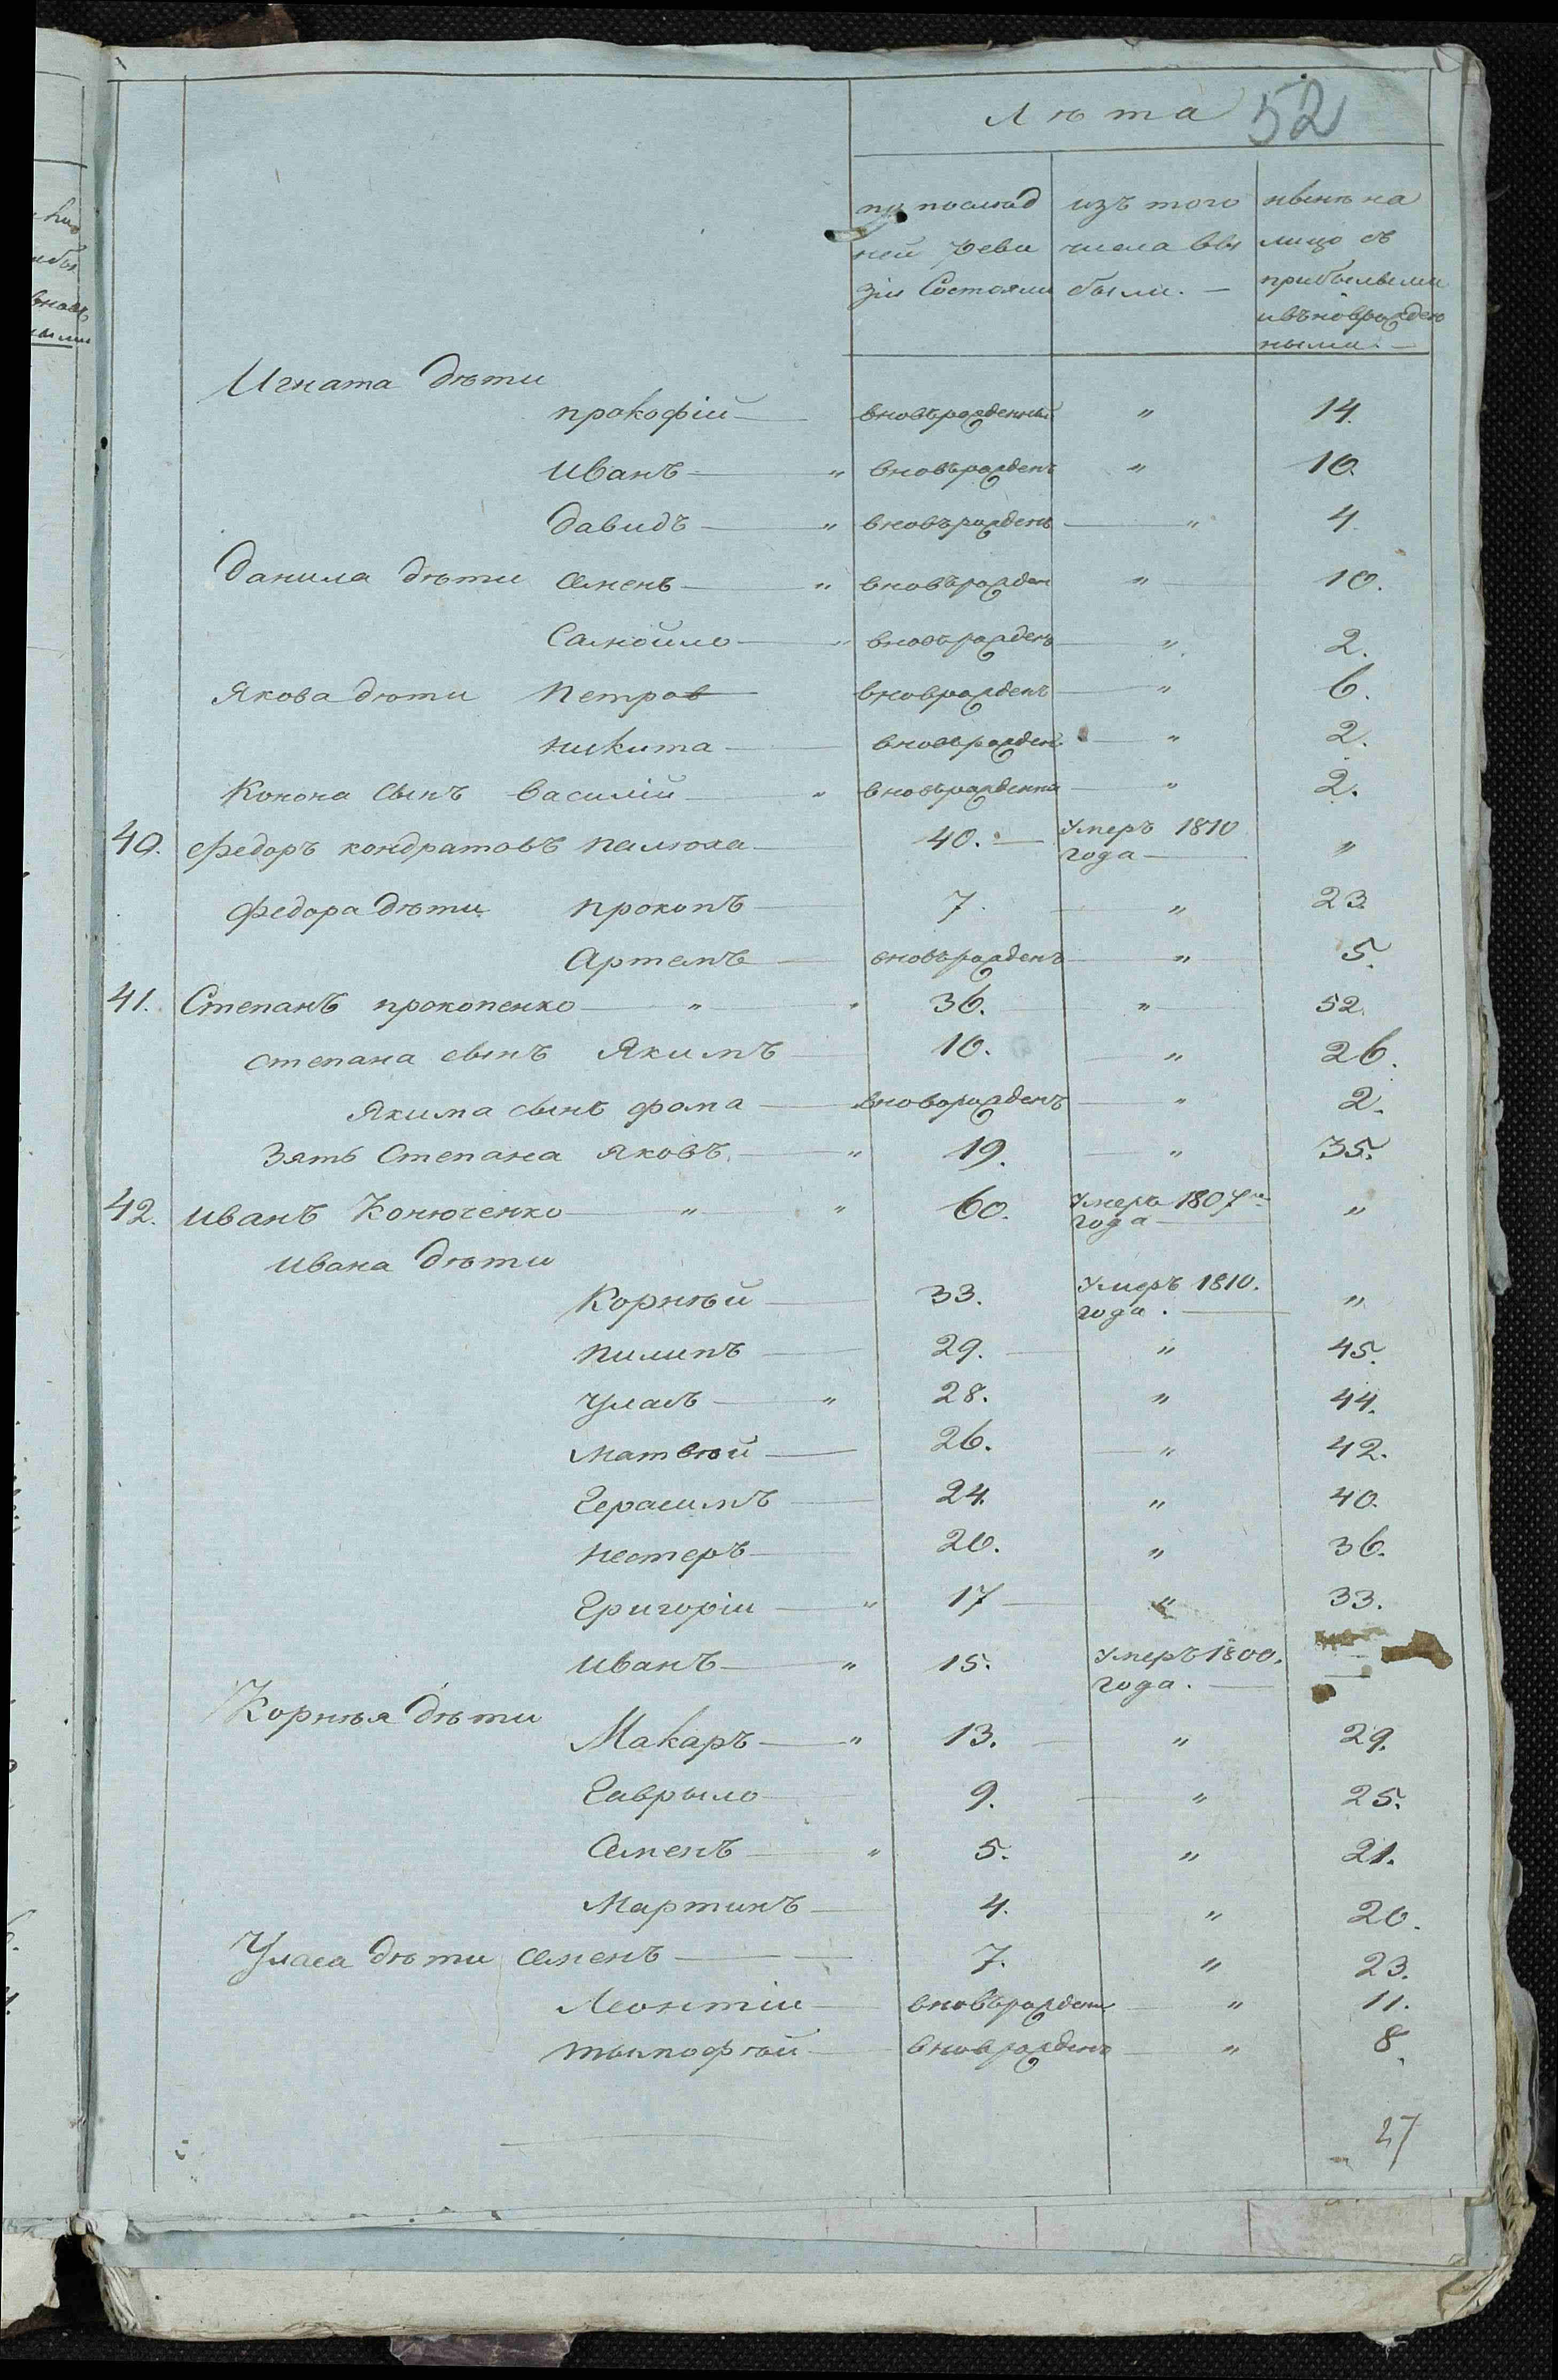 Лѣта 52
по послѣд изъ того нынѣ на
ней реви числа вы лицо съ
зіи Состояли были. — прибылыми
и въновърожден
ными. —
Игната дѣти
прокофій — вновърожденный " 14.
Иванъ — " вновърожденъ " 10.
давидъ — " вновърожденъ — " 4.
данила дѣти Семенъ — " вновърожден " 10.
Самойло — " вновърожденъ — " 2.
Якова дѣти Петров вноврожденъ — " 6.
никита — вновърожден — " 2.
Конона сынъ василій — " вновърожденны — " 2.
40. Федоръ кондратовъ палюха — 40. — Умеръ 1810 "
года —
Федора дѣти прокопъ — 7. — " 23.
Артемъ — вновърожденъ — " 5.
41. Степанъ прокопенко — " — " 36. " 52.
степана сынъ Якимъ 10. — " 26.
Якима сынъ фома — вноворожденъ — " 2.
Зять Степана яковъ. — " 19. — " 35.
42. иванъ Конюченко — " " 60. Умеръ 1807го "
года —
ивана дѣти
Корнѣй — 33. Умеръ 1810. "
года. —
пилипъ — 29. — " 45.
Уласъ — " 28. " 44.
матвѣй — 26. — " 42.
Герасимъ — 24. " 40.
нестеръ — 20. " 36.
Григоріи — " 17 — " 33.
иванъ — " 15. Умеръ 1800.
года. —
Корнѣя дѣти
Макаръ — " 13. — " 29.
Гаврыло 9. — " 25.
Семенъ — " 5. " 21.
Мартинъ — 4. " 20.
Уласа дѣти семенъ — 7. " 23.
Леонтіи — вновърожден — " 11.
тымофѣй — вноврожденъ — " 8.
27